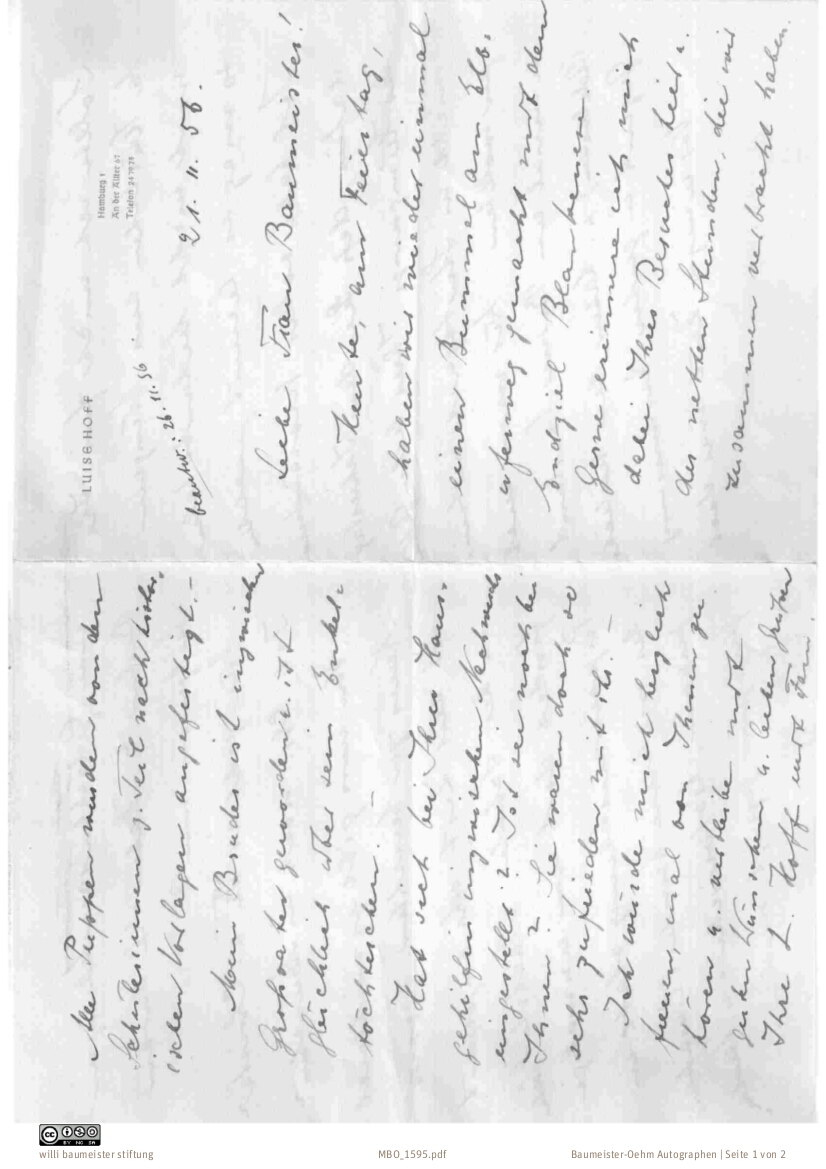 LUISE HOFF
Hamburg 1
An der Alster 67
Telefon
beantw.: 26.11.56
21. 11. 56.
Liebe Frau Baumeister!
Heute, am Feiertag,
haben wir wieder einmal
einen Bummel am Elb-
uferweg gemacht mit dem
Endziel Blankenese.
Gerne erinnere ich mich
dabei Ihres Besuches hier u.
der netten Stunden, die wir
zusammen verbracht haben.
Alle Puppen wurden von den
Schülerinnen z. Teil nach histor-
ischen Vorlagen angefertigt. –
Mein Bruder ist inzwischen
Großvater geworden u. ist
glücklich über sein Enkel-
töchterchen. –
Hat sich bei Ihrer Haus-
gehilfin inzwischen Nachwuchs
eingestellt? Ist sie noch bei
Ihnen? Sie waren doch so
sehr zufrieden mit ihr. –
Ich würde mich herzlich
freuen, mal von Ihnen zu
hören u. verbleibe mit
guten Wünschen u. lieben Grüßen
Ihre L. Hoff und Fam.
willi baumeister stiftung
MBO_1595.pdf
Baumeister-Oehm Autographen | Seite 1 von 2
CC BY NC SA